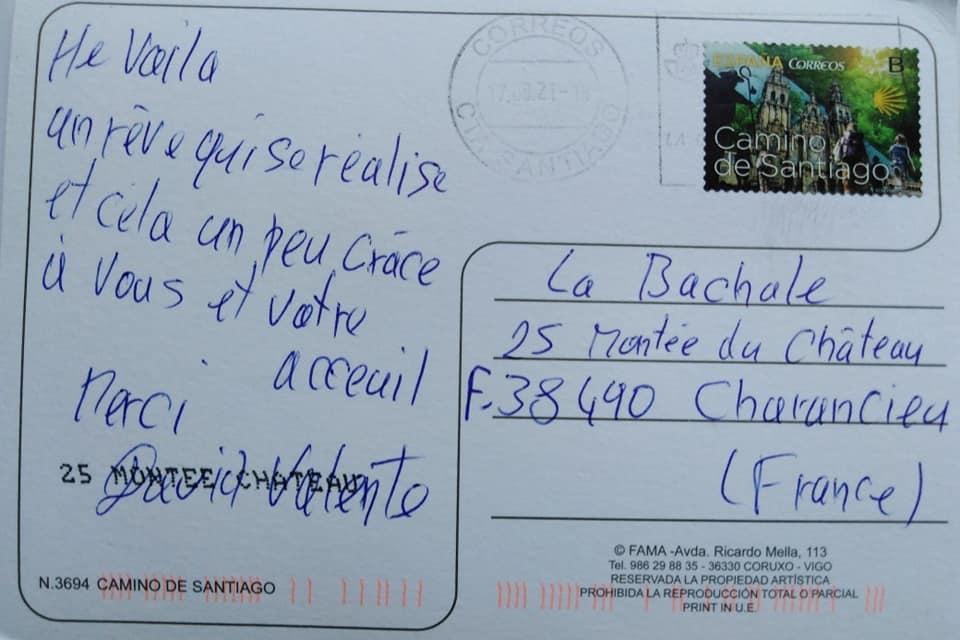 He Voila
un rêve qui se réalise
et cela un peu Grâce
à Vous et votre
acceuil
Merci
David Valente
25 MONTEE CHATEAU
N.3694 CAMINO DE SANTIAGO
CORREOS
CTA SANTIAGO
ESPAÑA CORREOS B
Camino
de Santiago
La Bachale
25 Montée du Château
F.38490 Charancieu
(France)
© FAMA -Avda. Ricardo Mella, 113
Tel. 986 29 88 35 - 36330 CORUXO - VIGO
RESERVADA LA PROPIEDAD ARTÍSTICA
PROHIBIDA LA REPRODUCCIÓN TOTAL O PARCIAL
PRINT IN U.E.